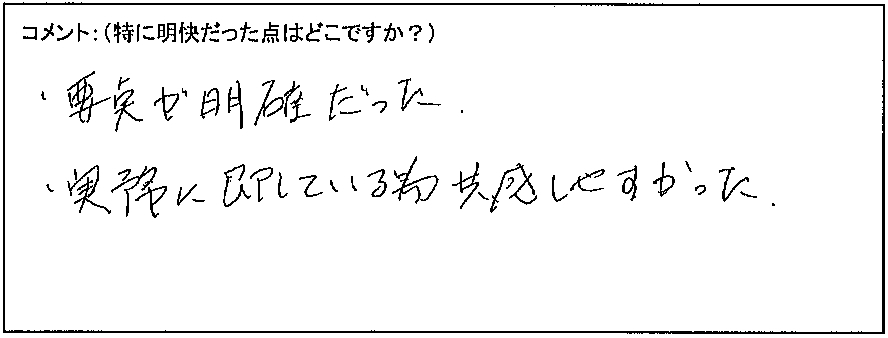 コメント：（特に明快だった点はどこですか？）
・要点が明確だった．
・実務に即している為共感しやすかった．